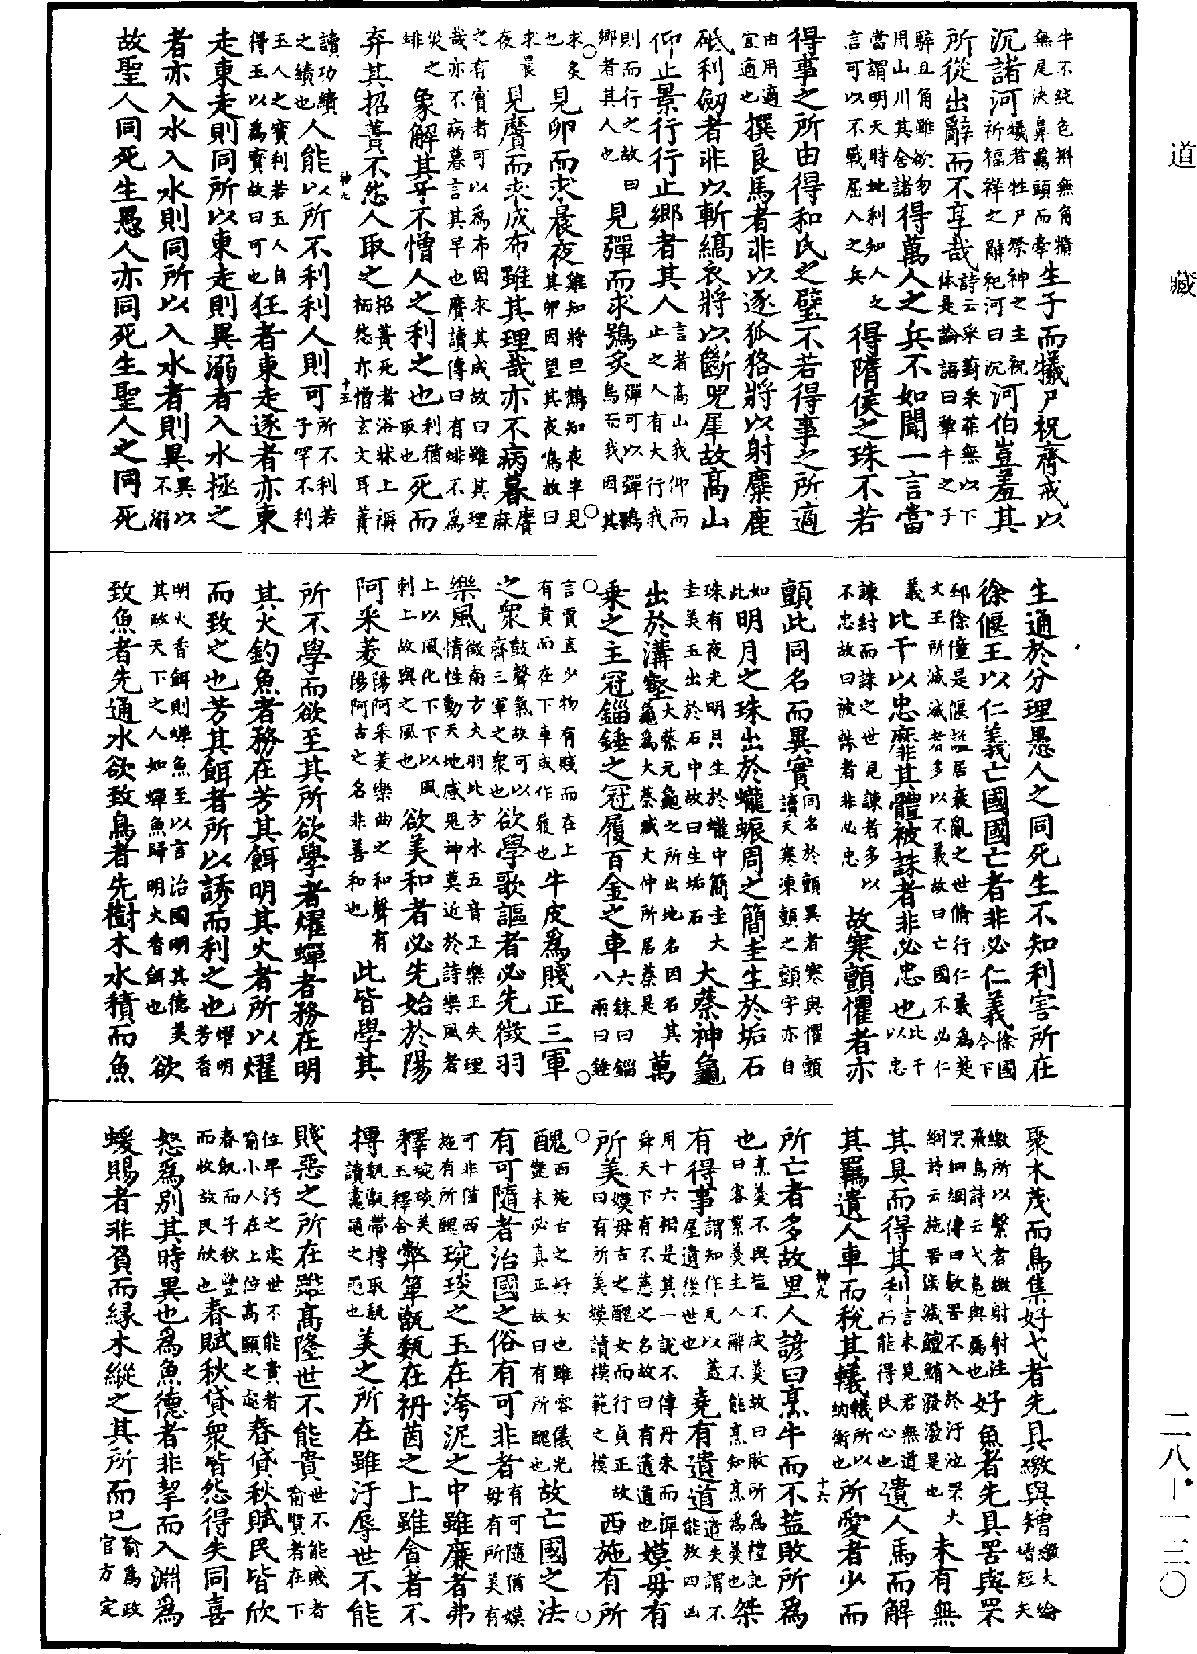 道藏
牛不純色犐無角㹊無尾決鼻羈頭而牽生子而犧尸祝齊戒以
沉諸河犧者牲尸祭神之主祝祈福祥之辭祀河曰沉河伯豈羞其
所從出辭而不享哉詩云采葑采菲無以下體是論語曰犂牛之子
騂且角雖欲勿用山川其舍諸得萬人之兵不如聞一言當
當謂明天時地利知人之言可以不戰屈人之兵得隋侯之珠不若
得事之所由得和氏之璧不若得事之所適
由用適宜適也撰良馬者非以逐狐狢將以射麋鹿
砥利劒者非以斬縞衣將以斷兕犀故高山
仰止景行行止鄉者其人言者高山我仰而止之人有大行我
則而行之故曰鄉者其人也見彈而求鴞炙彈可以彈鴞鳥而我因其
求炙也見卵而求晨夜雞知將旦鶴知夜半見其卵因望其夜鳴故曰
求晨夜見黂而求成布雖其理哉亦不病暮黂麻
之有實者可以爲布因求其成故曰雖其理哉亦不病暮言其早也黂讀傳曰有蜚不爲
災之蜚象解其牙不憎人之利之也利猶取也死而
弃其招簀不怨人取之招簀死者浴牀上栭怨亦憎玄文耳簀
讀功績之績也人能以所不利利人則可所不利若子罕不利
玉人之寶利若玉人自得玉以爲寶故曰可也狂者東走逐者亦東
走東走則同所以東走則異溺者入水拯之
者亦入水入水則同所以入水者則異異以不溺
故聖人同死生愚人亦同死生聖人之同死
神九
十五
生通於分理愚人之同死生不知利害所在
徐偃王以仁義亡國國亡者非必仁義徐國今下
邳徐僮是偃謚居衰亂之世脩行仁義爲楚文王所滅滅者多以不義故曰亡國不必仁
義比干以忠靡非其體被誅者非必忠也比干以忠
諫紂而誅之世見諫者多以不忠故曰被誅者非必忠故寒顫懼者亦
顫此同名而異實同名於顫異者寒與懼顫讀天寒凍顫之顫字亦白
如此明月之珠出於蠬蜄周之簡圭生於垢石
珠有夜光明月生於蠬中簡圭大圭美玉出於石中故曰生垢石大蔡神龜
出於溝壑大蔡元龜之所出地名因名其龜爲大蔡臧文仲所居蔡是萬
乘之主冠錙錘之冠履百金之車六銖曰錙八兩曰錘
言賈直少物有賤而在上有貴而在下車或作履也牛皮爲賤正三軍
之衆鼓聲氣故可以齊三軍之衆也欲學歌謳者必先徵羽
樂風徵南方火羽北方水五音正樂正夫理情性動天地感鬼神莫近於詩樂風者
上以風化下下以風刺上故與之風也欲美和者必先始於陽
阿采菱陽阿采菱樂曲之和聲有陽阿古之名非善和也此皆學其
所不學而欲至其所欲學者燿蟬者務在明
其火釣魚者務在芳其餌明其火者所以燿
而致之也芳其餌者所以誘而利之也燿明芳香
明火香餌則蟬魚至以言治國明其德美其政天下之人如蟬魚歸明火香餌也欲
致魚者先通水欲致鳥者先樹木水積而魚
聚木茂而鳥集好弋者先具繳與矰繳大綸矰短矢
繳所以繫者繳射射注飛鳥詩云弋鳧與鴈也好魚者先具罟與罘
罘細網傳曰數罟不入於汙池罘大網詩云施罟濊濊鱣鮪發發是也未有無
其具而得其利言未見君無道而能得民心也遺人馬而解
其羈遺人車而稅其轙轙所以納衡也所愛者少而
所亡者多故里人諺曰烹牛而不盬敗所爲
也烹羹不與盬不成羹故曰敗所爲禮記曰客絮羹主人辭不能烹知烹爲羹也桀
有得事謂知作瓦以蓋屋遺後世也堯有遺道遺失謂不能放四凶
用十六相是其一說不傳丹朱而禪舜天下有不慈之名故曰有遺道也嫫母有
所美嫫母古之醜女而行貞正故曰有所美嫫讀模範之模西施有所
醜西施古之好女也雖容儀光艷未必真正故曰有所醜也故亡國之法
有可隨者治國之俗有可非者有可隨猶嫫母有所美有
可非猶西施有所醜琬琰之玉在洿泥之中雖廉者弗
釋琬琰美玉釋舍弊箄甑瓾在袇茵之上雖貪者不
摶甑瓾帶摶取瓾讀之也美之所在雖汙辱世不能
賤惡之所在雖高隆世不能貴世不能賤者喻賢者在下
位卑汙之處世不能貴者喻小人在上位高顯之處春貸秋賦民皆欣
春飢而予秋豐而收故民欣也春賦秋貸衆皆怨得失同喜
怒爲別其時異也爲魚德者非挈而入淵爲
蝯賜者非負而緣木縱之其所而已喻爲政官方定
神九
十六
二八-一三〇